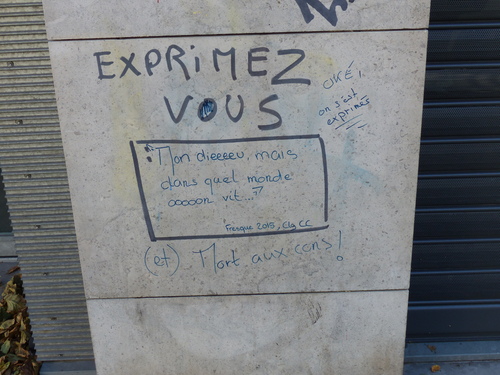 EXPRIMEZ
VOUS
OKÉ,
on s'est
exprimés
"Mon dieeeeu, mais
dans quel monde
ooooon vit..."
Fresque 2015, Clg CC
(et) Mort aux cons!